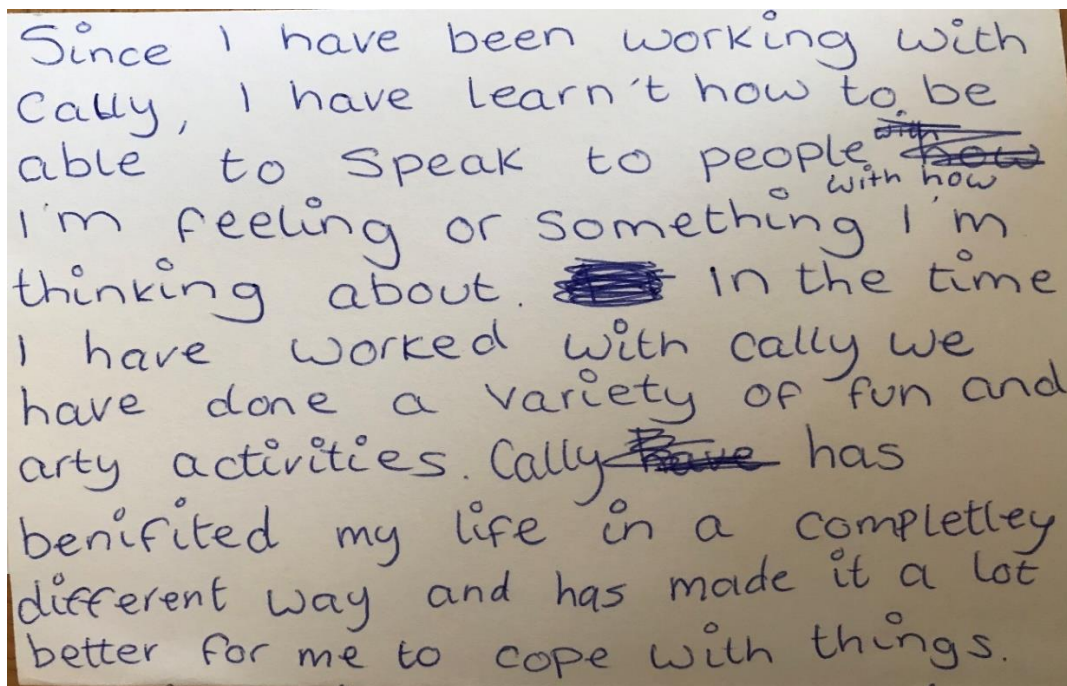 Since I have been working with
Cally, I have learn't how to be
able to speak to people with how
I'm feeling or something I'm
thinking about. In the time
I have worked with Cally we
have done a variety of fun and
arty activities. Cally has
benifited my life in a completley
different way and has made it a lot
better for me to cope with things.